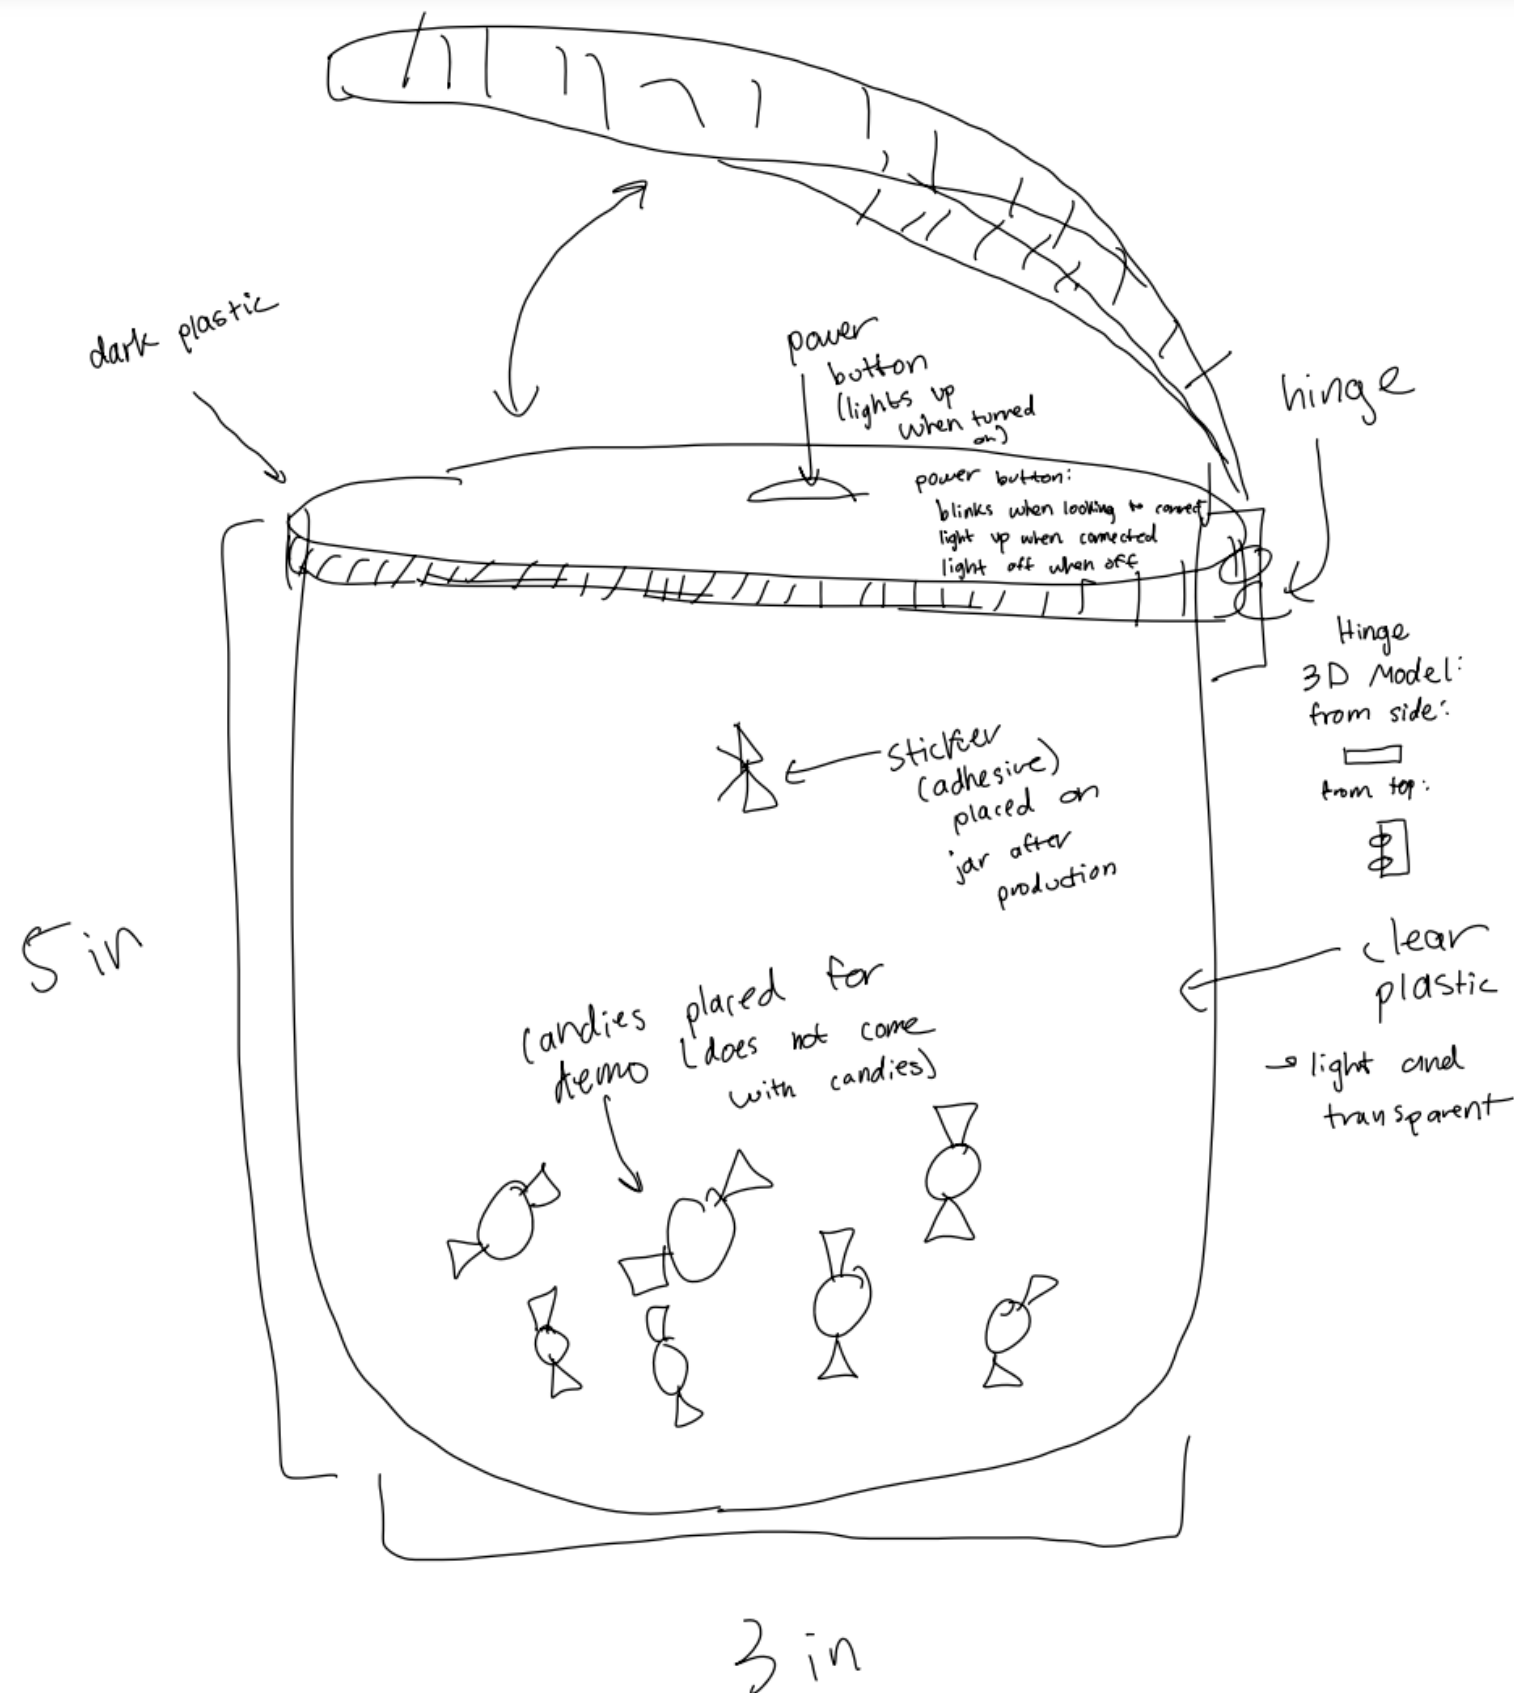 dark plastic
power
button
(lights up
when turned
on)
hinge
power button:
blinks when looking to connect
light up when connected
light off when off
Hinge
3D Model:
from side:
from top:
sticker
(adhesive)
placed on
jar after
production
5 in
clear
plastic
→ light and
transparent
candies placed for
demo (does not come
with candies)
3 in